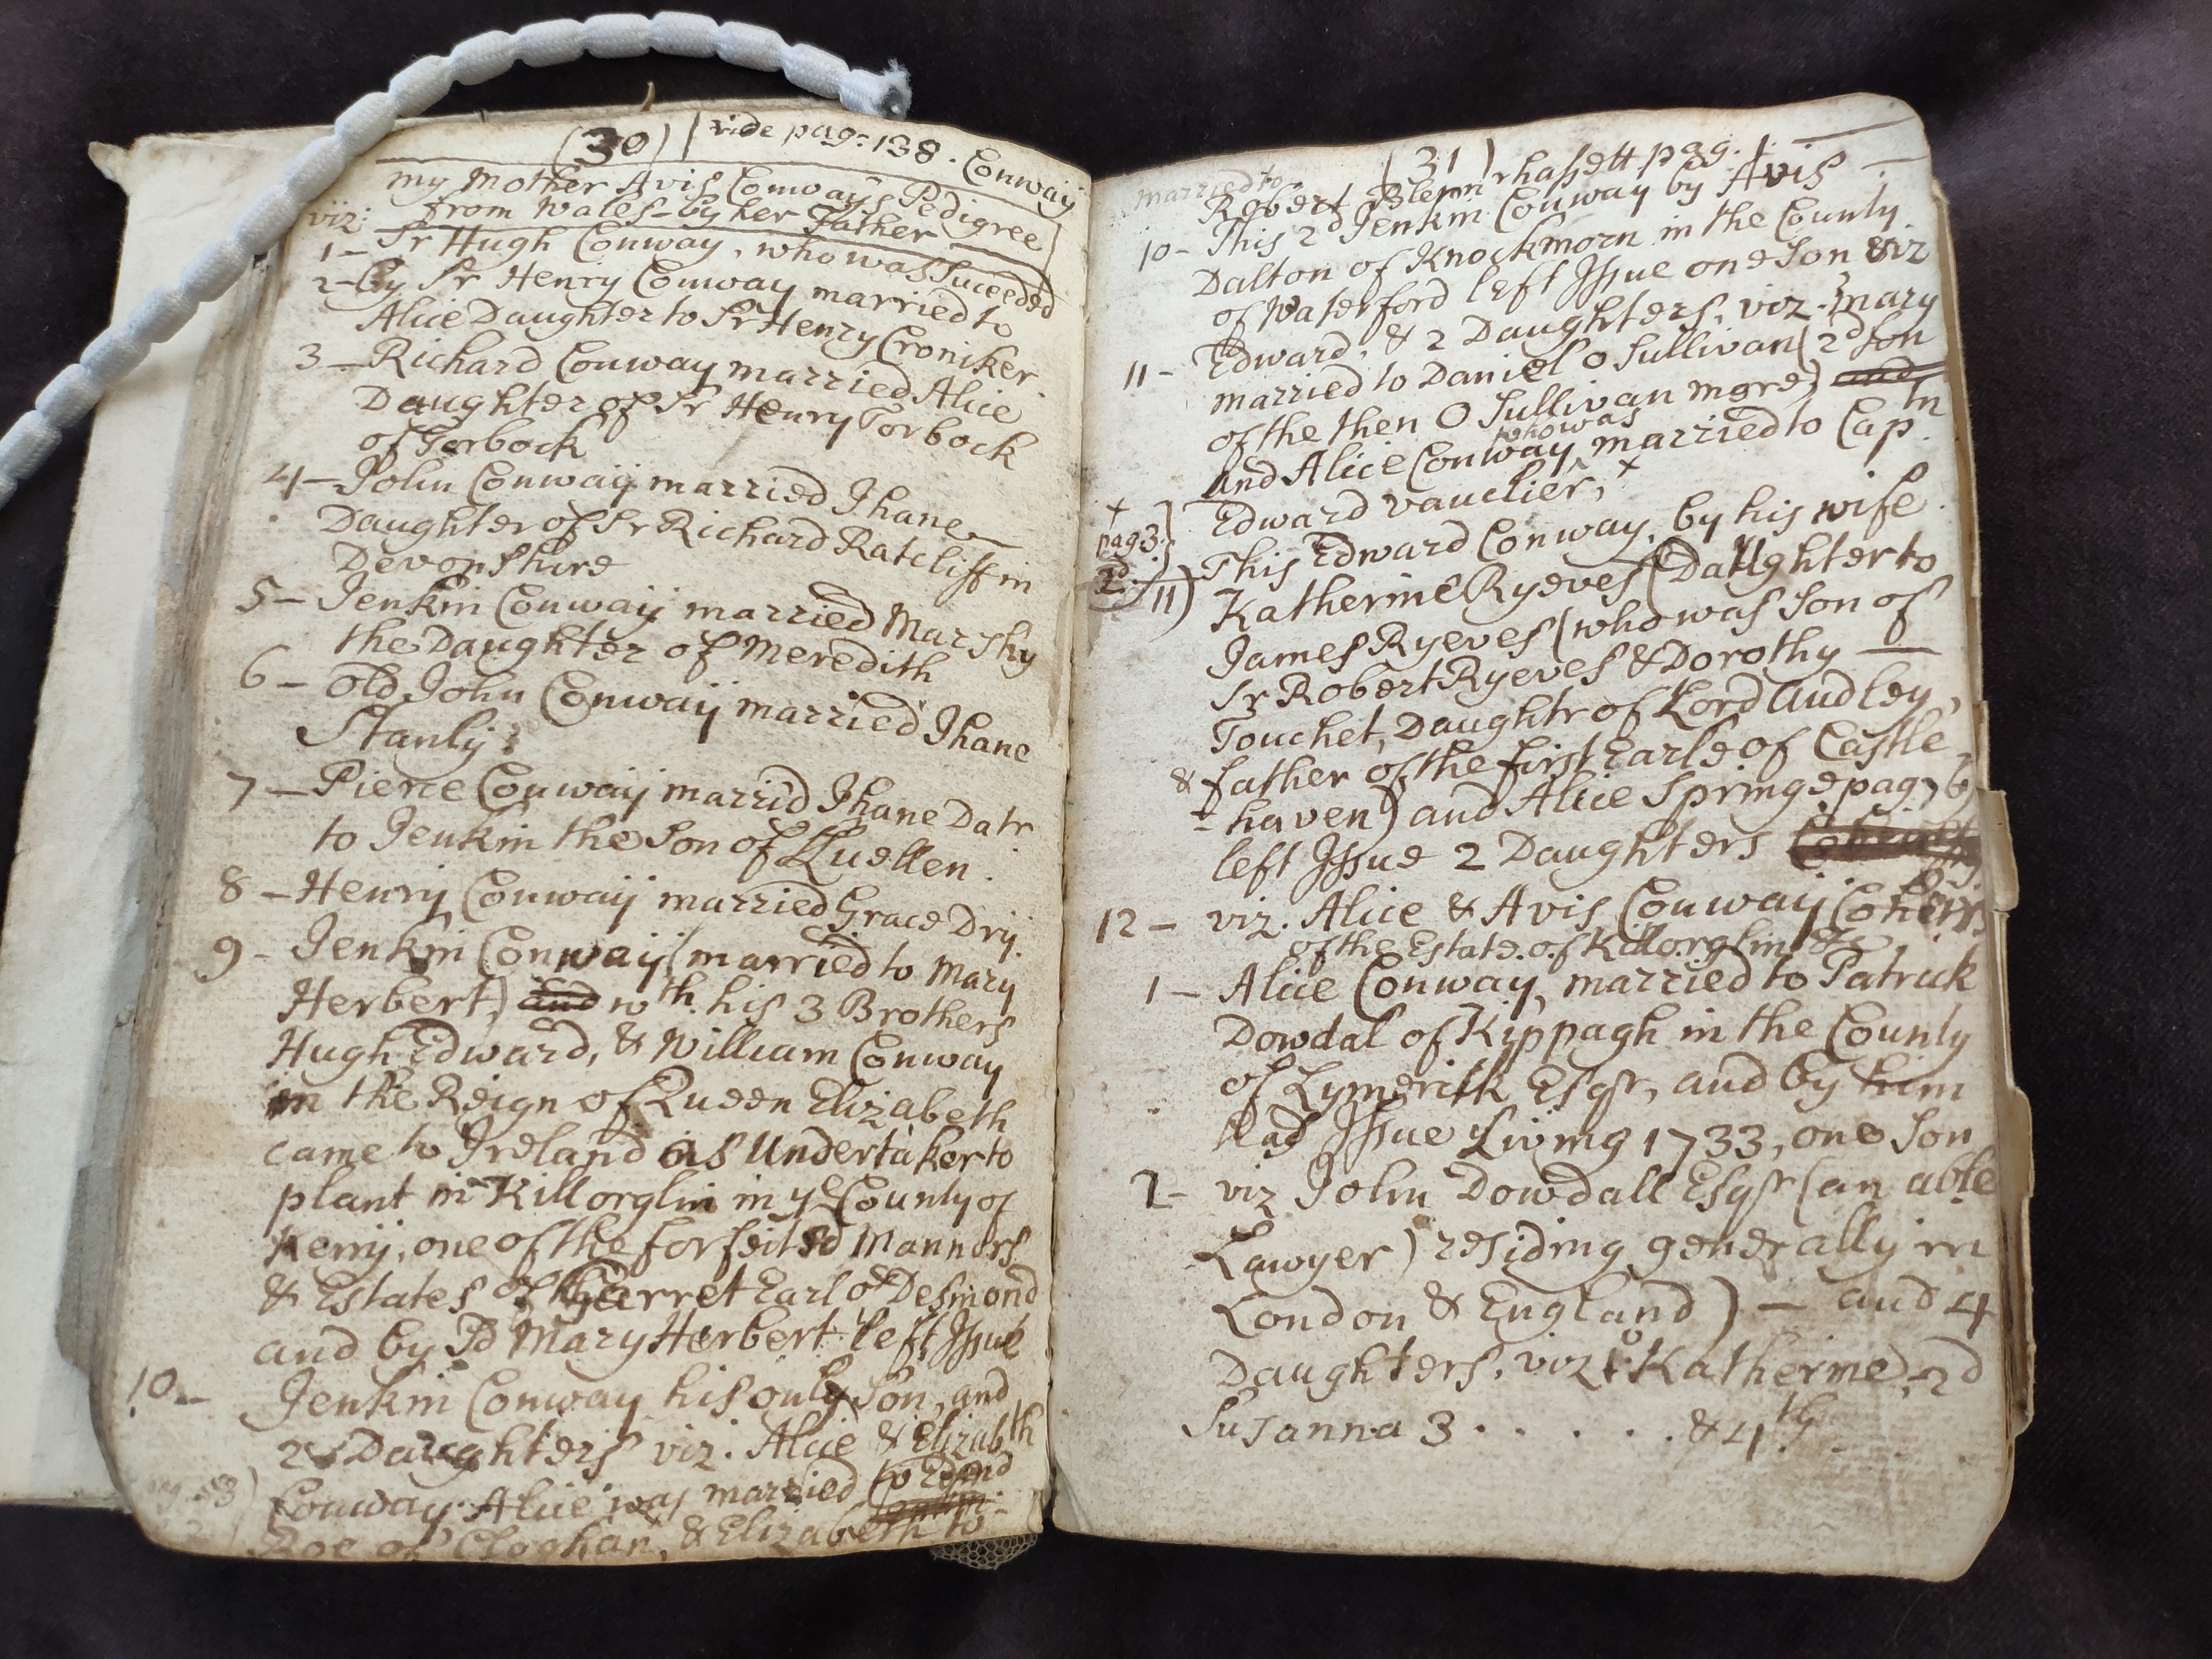 (30) vide pag: 138. Conway
my Mother Avis Conway's Pedigree
viz: from Wales by her Father
1- Sr Hugh Conway, who was Suceeded
2- by Sr Henry Conway married to
Alice Daughter to Sr Henry Croniker
3- Richard Conway married Alice
Daughter of Sr Henry Torbock
of Torbock
4- John Conway married Jhane
Daughter of Sr Richard Ratcliff in
Devonshire
5- Jenkin Conway married Marshy
the Daughter of Meredith
6- old John Conway married Jhane
Stanly
7- Pierce Conway marrid Jhane Datr
to Jenkin the Son of Lluellen.
8- Henry Conway married Grace Dry
9- Jenkin Conway (married to Mary
Herbert) and wth. his 3 Brothers
Hugh Edward, & William Conway
in the Reign of Queen Elizabeth
came to Ireland as Undertaker to
plant in Killorglin in ye County of
Kerry, one of the forfeited Mannors
& Estates of Garret Earl of Desmond
and by sd Mary Herbert left Issue
10- Jenkin Conway his only Son, and
2 Daughters viz. Alice & Elizabth
Conway. Alice was married to Edmd
Roe of Cloghan, & Elizabeth to
married to (31)
Robert Blennerhassett pag. 1.
10- This 2d Jenkin Conway by Avis
Dalton of Knockmorn in the County
of Waterford left Issue one Son viz
11- Edward, & 2 Daughters, viz. Mary
married to Daniel O Sullivan (2d Son
of the then O Sullivan more) and
who was
and Alice Conway married to Captn
Edward Vauclier, x
x pag 3.
2d. 11) This Edward Conway, by his wife
Katherine Ryeves (Daughter to
James Ryeves (who was Son of
Sr Robert Ryeves & Dorothy
Touchet, Daughtr of Lord Audley,
& father of the first Earle of Castle-
-haven) and Alice Springe pag 76)
left Issue 2 Daughters
12- viz. Alice & Avis Conway Coheirs
of the Estate of Killorglin &c
1- Alice Conway, married to Patrick
Dowdal of Kippagh in the County
of Lymerick Esqr, and by him
had Issue Living 1733, one Son
2- viz John Dowdall Esqr (an able
Lawyer) residing generally in
London & England) - and 4
Daughters, viz 1o Katherine, 2d
Susanna 3 . . . . . & 4th . .